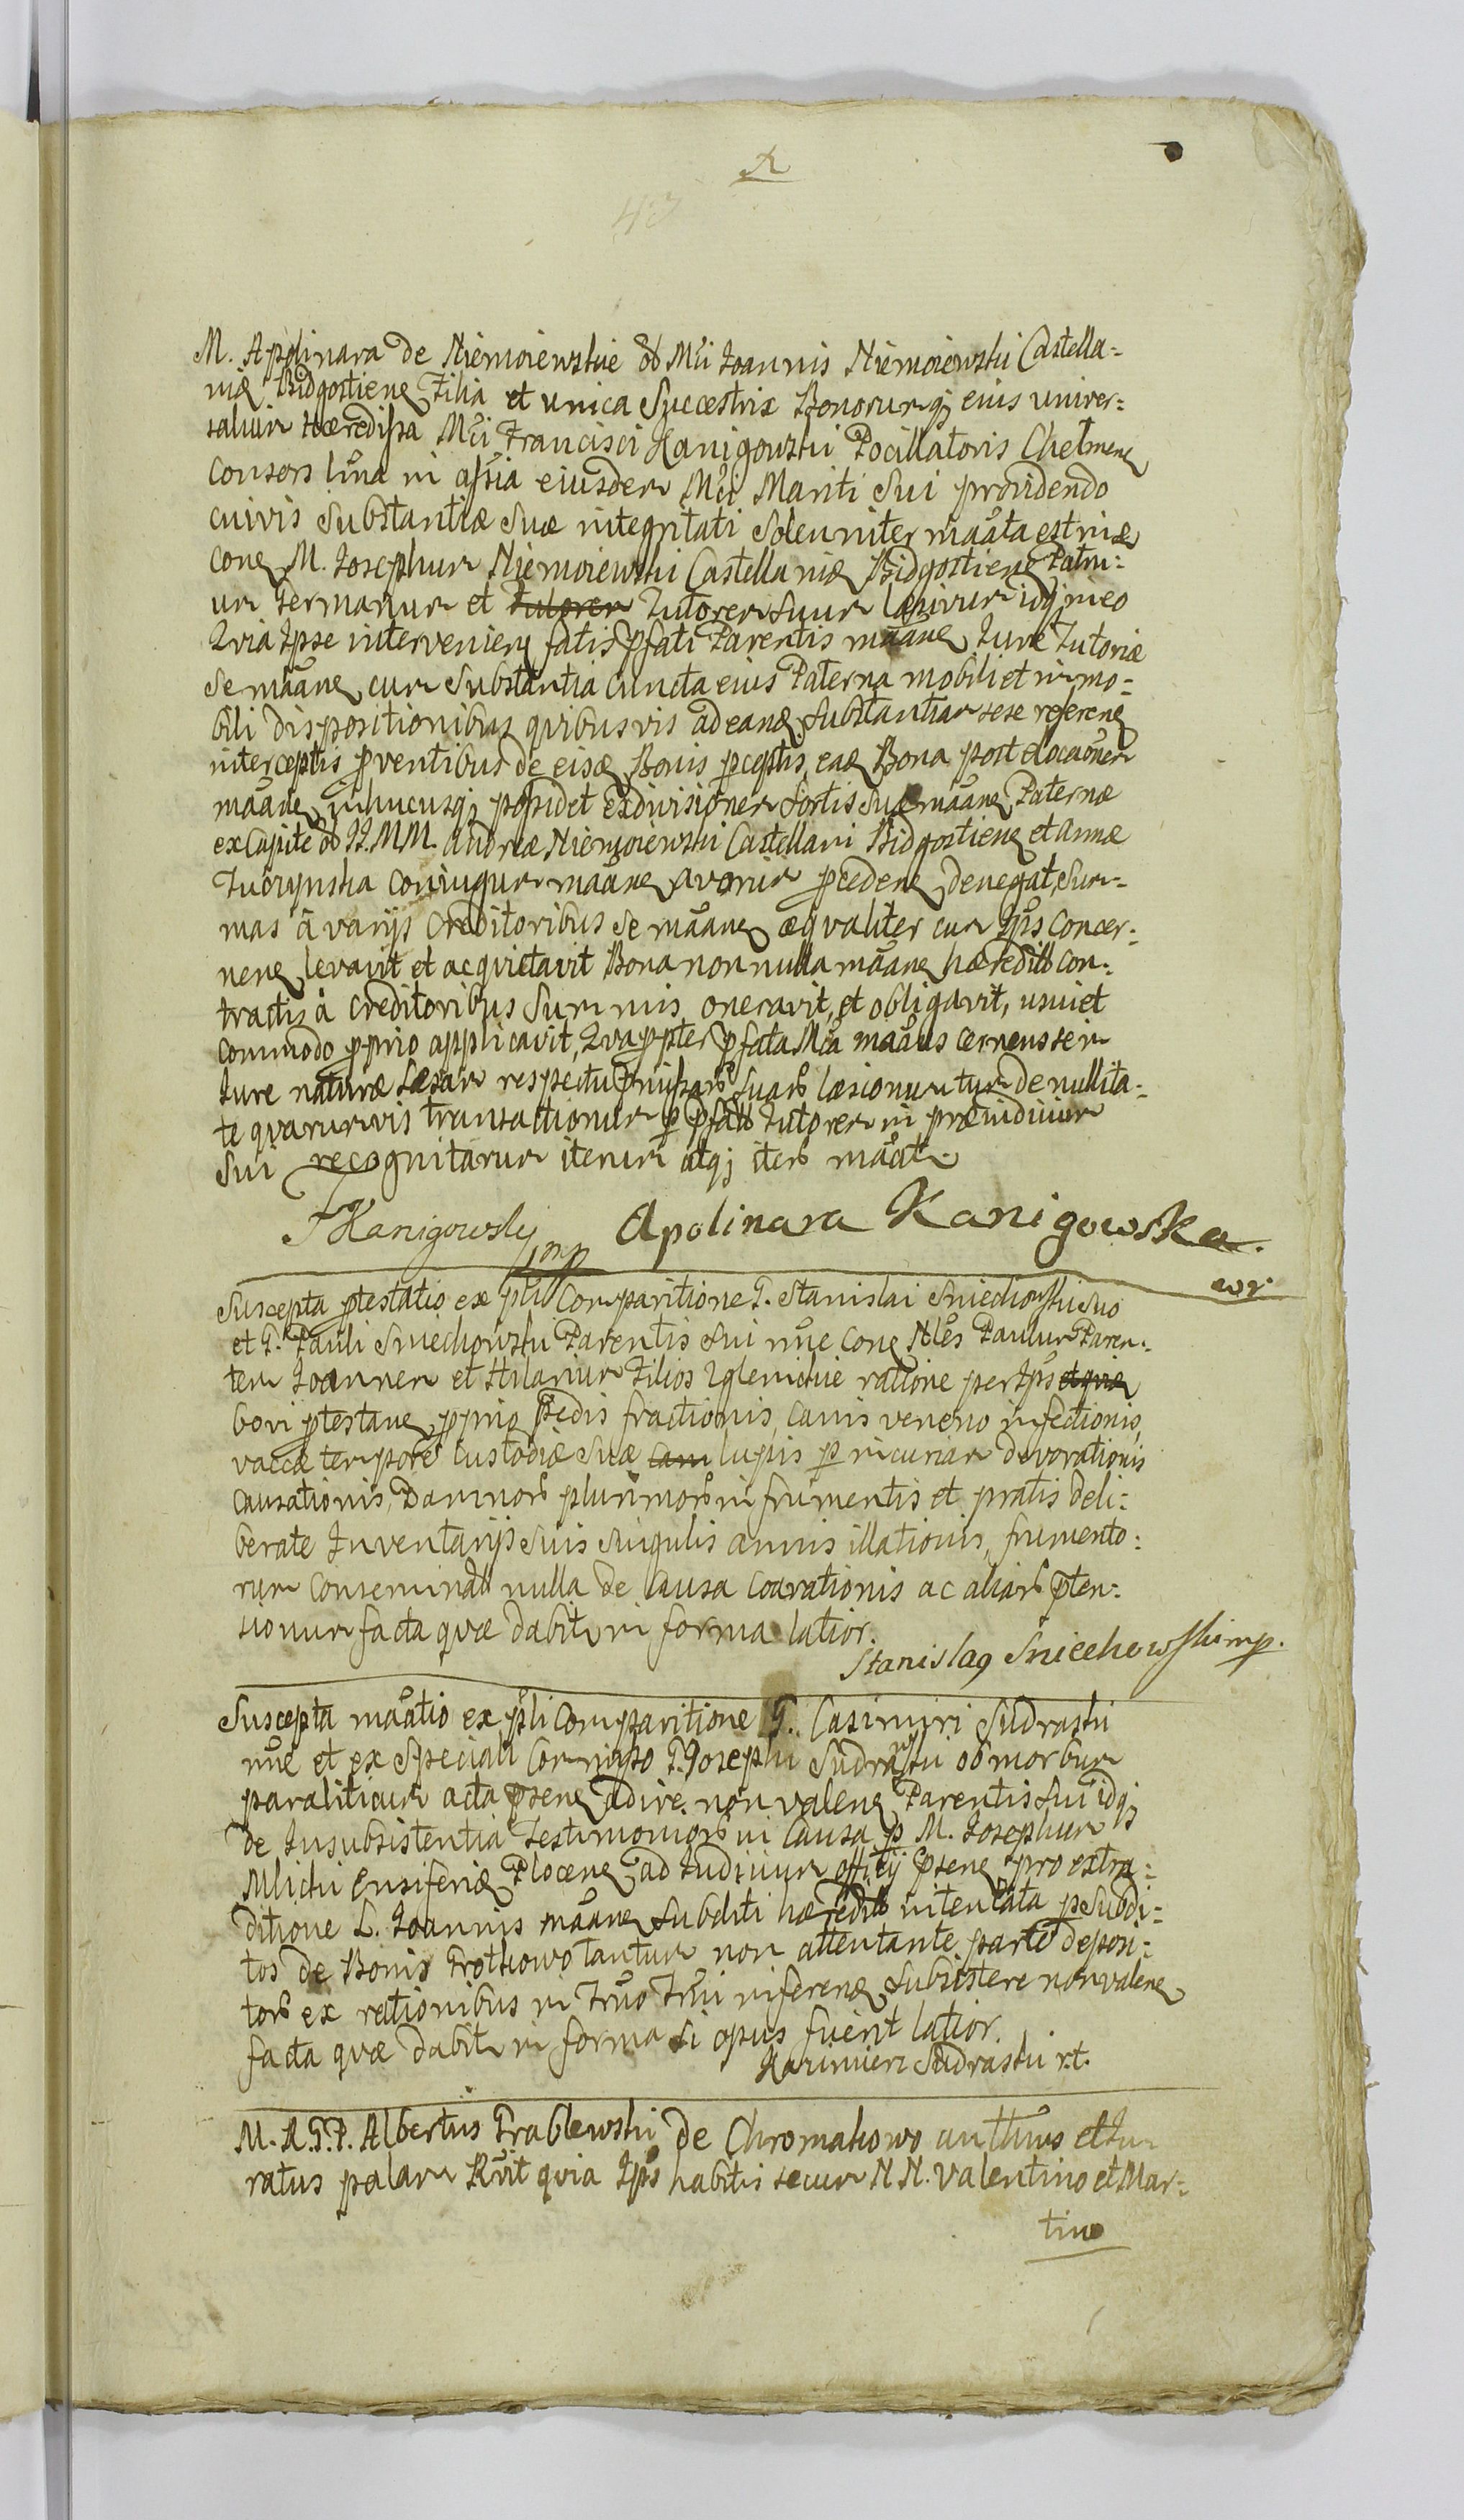 43
M. Apolinara de Niemoiewskie ob Mci Joannis Niemoiewski Castella=
nid Bidgostien Filia et unica Succestrix Bonorumq eius univer=
salium Hæredissa Mci Francisci Kanigowski Pocillatoris Chelmen
Consors lma in assia eiusdem Mci Mariti Sui providendo
cuivis Substantiæ Suæ integritati Solenniter maata est in et
con M. Josephum Niemoiewski Castellanid Bidgostien Patru=
um Germanum et Tutorem Tutorem Suum Lenivum idq in eo
Quia Ipse interveniens fatis pfati Parentis maan Jure Tutoriæ
Se maan cum Substantia cuncta eius Paterna mobili et immo=
bili dispositionibus quibusvis ad eand Substantiam sese referen
interceptis pventibus de eisd Bonis pceptis ead Bona post elocaonem
maan inhucusq possidet exdivisionem Sortis Suæ maan Paternæ
ex Capite ob II. MM. Andreæ Niemoiewski Castellani Bidgostien et Annæ
Tuczynska Coniugum maan Avorum pceden denegat, Sum=
mas à varijs Creditoribus Se maan æqvaliter cum Ips Concer=
nen levavit et acquietavit Bona nonnulla maan hæredit con=
tractis à Creditoribus Summis oneravit, et obligavit, usui et
commodo pprio applicavit, Quappter pfata Mca maans cernens se in
Jure naturæ læsam respectu pmissar Suar læsionum tum de nullita=
te quarumvis transactionum p pfat Tutorem in præiudicium
Sui recognitarum iterum atq iter maat
FKanigowsky mp Apolinara Kanigowska
Suscepta ptestatio ex pli Comparitione G. Stanislai Sniechowski Suo
et G. Pauli Sniechowski Parentis Sui nne Con Nles Paulum Paren=
tem Joannem et Hilarium Filios Iglenickie ratione per Ips
bovi ptestan pprio pedis fractionis, Canis veneno infectionis,
vaccæ tempore Custodiæ Suæ lupis p incuriam devorationis
Causationis, Damnor plurimor in frumentis et pratis deli=
berate Inventarijs Suis Singulis annis illationis, frumento=
rum Conseminat nulla de Causa Coarationis ac aliar pten=
sionum facta quæ dabit in forma latior.
Stanislaq Sniechowski mp.
Suscepta maatio ex pli Comparitione G. Casimiri Sudraski
nne et ex Speciali Commisso G. Josephi Sudraski ob morbum
paraliticum acta psen adire non valen Parentis Sui idq
de Insubsistentia Testimonior in Causa p M. Josephum
Mlicki Ensiferid Plocen ad Iudicium officij psen pro extra=
ditione L. Joannis maan Subditi hæredit intentata p Subdi=
tos de Bonis Trotkowo tantum non attentante parte deposi=
tor ex rationibus in Truo Trui inferend Subsistere non valen
facta quæ dabit in forma si opus fuerit latior.
Kazimierz Sudraski r.t.
M. A. G. P. Albertus Grablewski de Chromakowo authus et Ju
ratus palam Rvit quia Ips habitis secum N N. Valentino et Mar=
tino